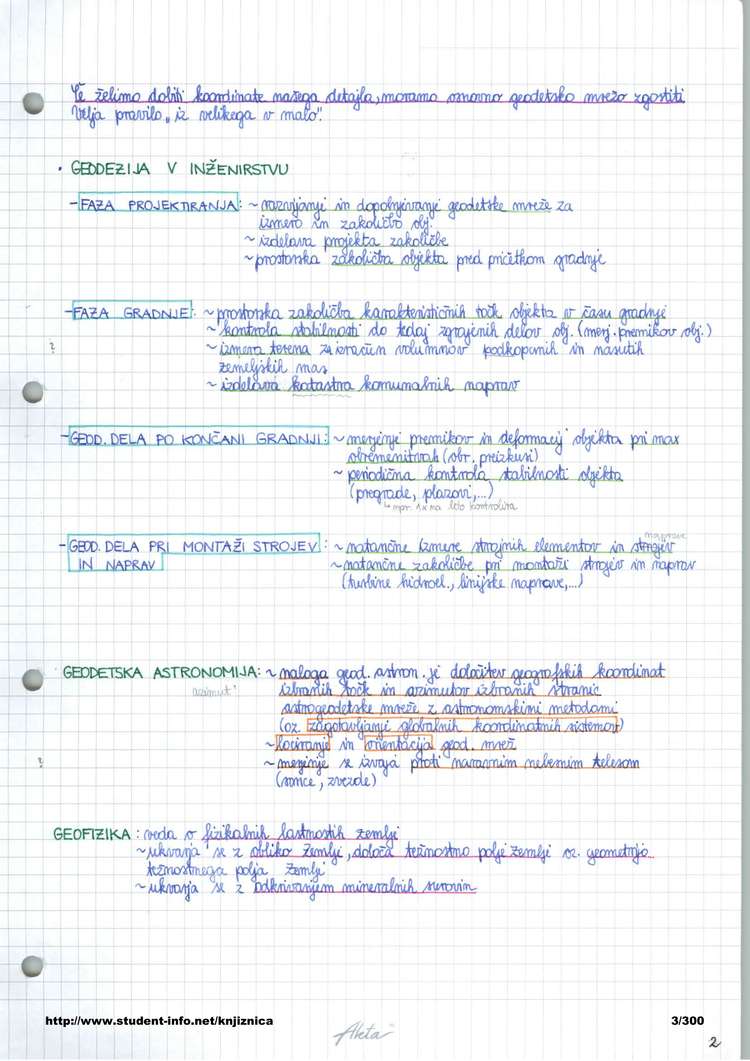 Če želimo dobiti koordinate našega detajla, moramo osnovno geodetsko mrežo zgostiti
Velja pravilo "iz velikega v malo".
• GEODEZIJA V INŽENIRSTVU
- FAZA PROJEKTIRANJA: ~ razvijanji in dopolnjivanji geodetske mreže za
izmero in zakoličbo obj.
~ izdelava projekta zakoličbe
~ prostorska zakoličba objekta pred pričetkom gradnje
- FAZA GRADNJE: ~ prostorska zakoličba karakterističnih točk objekta v času gradnje
~ kontrola stabilnosti do tedaj zgrajenih delov obj. (merj. premikov obj.)
? ~ izmera terena za izračun volumnov podkopanih in nasutih
zemeljskih mas
~ izdelava katastra komunalnih naprav
- GEOD. DELA PO KONČANI GRADNJI: ~ merjenje premikov in deformacij objekta pri max
obremenitvah (obr. preizkusi)
~ periodična kontrola stabilnosti objekta
(pregrade, plazovi,...)
↳ npr. 1x na leto kontrolira
naprave
- GEOD. DELA PRI MONTAŽI STROJEV: ~ natančne izmere strojnih elementov in strojev
IN NAPRAV ~ natančne zakoličbe pri montaži strojev in naprav
(turbine hidroel., linijske naprave,...)
GEODETSKA ASTRONOMIJA: ~ naloga geod. astron. je določitev geografskih koordinat
azimut? izbranih točk in azimutov izbranih stranic
astrogeodetske mreže z astronomskimi metodami
(oz. zagotavljanje globalnih koordinatnih sistemov)
~ lociranje in orientacija geod. mrež
? ~ merjenje se izvaja proti naravnim nebesnim telesom
(sonce, zvezde)
GEOFIZIKA: veda o fizikalnih lastnostih zemlje
~ ukvarja se z obliko Zemlje, določa težnostno polje Zemlje oz. geometrijo
težnostnega polja Zemlje
~ ukvarja se z odkrivanjem mineralnih surovin
http://www.student-info.net/knjiznica
3/300
2